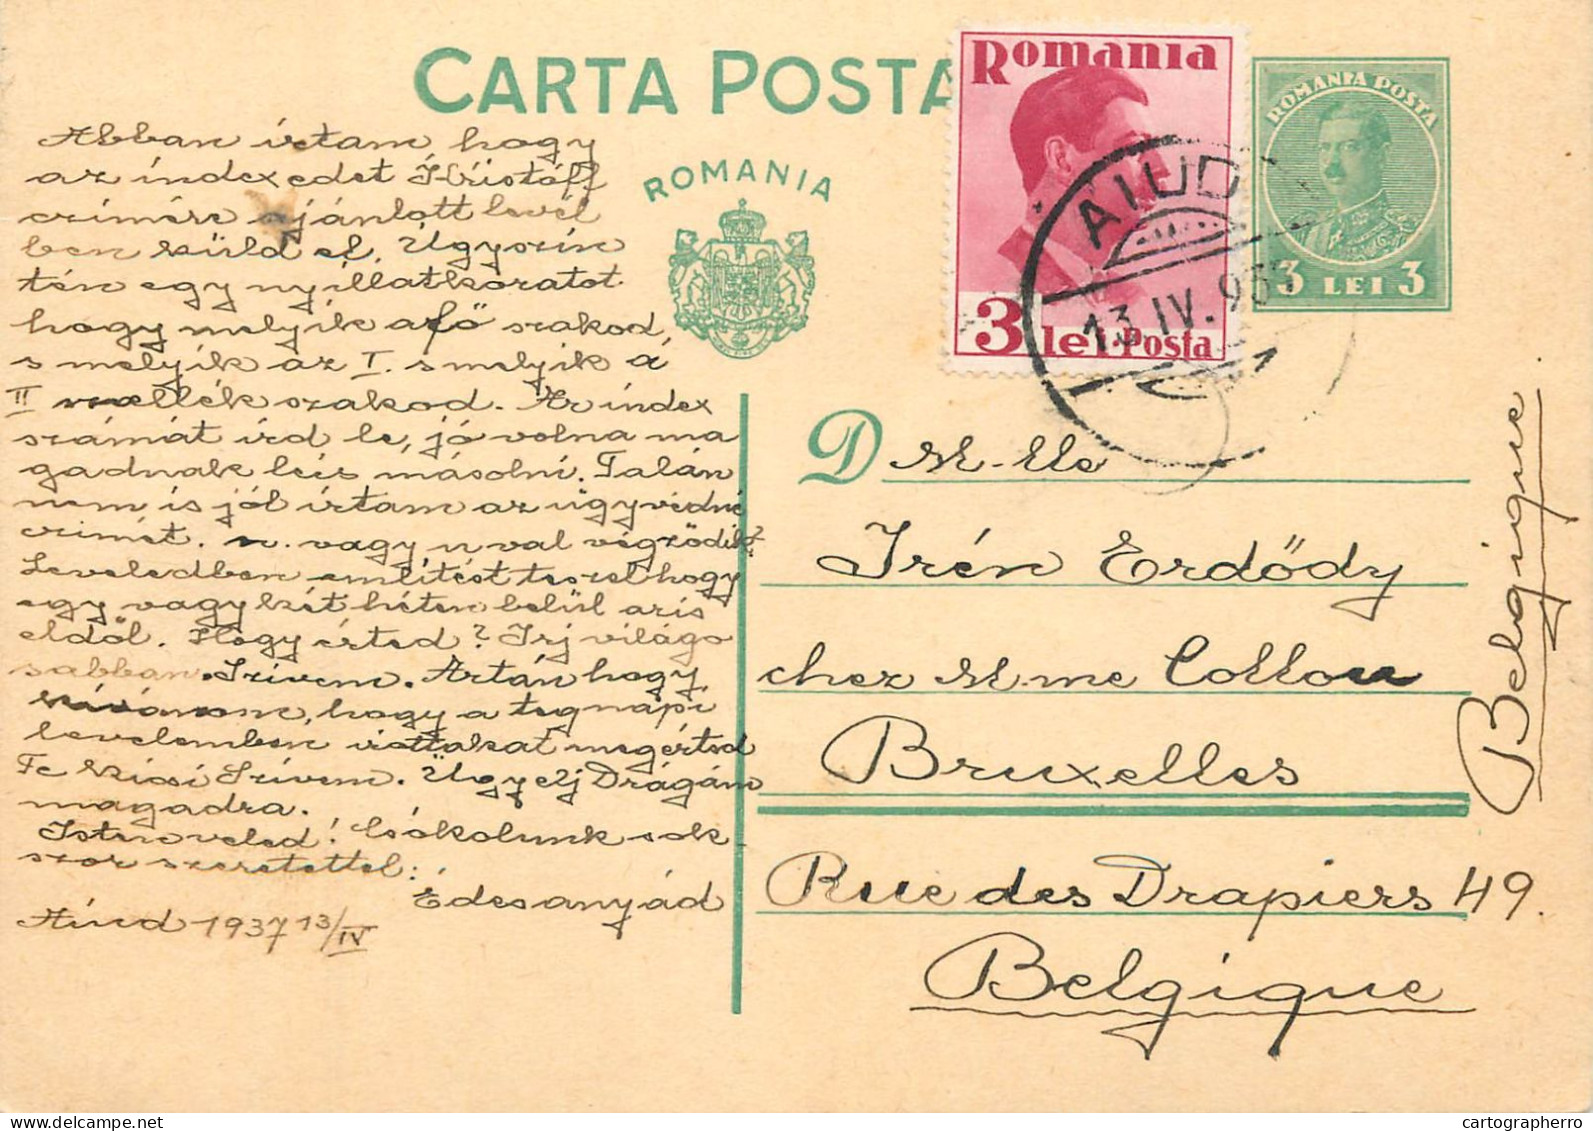 CARTA POSTA
ROMANIA
Romania
3 lei · Posta
AIUD
13. IV. 937
ROMANIA POSTA
3 LEI 3
Abban irtam hogy
az indexedet Kristóff
czimére ajánlott levél
ben küld el. Úgyszin
tén egy nyillatkozatot
hogy melyik a fő szakod,
s melyik az I. s melyik a
II mellék szakod. Az index
számát ird le, jó volna ma
gadnak leis másolni. Talán
nem is jól irtam az ügyvédné
czimét. n. vagy u val végződik?
Leveledben emlitést teszel hogy
egy vagy két héten belül azis
eldől. Hogy érted? Irj világo
sabban. Szivem. Aztán hogy
kivánom, hogy a tegnapi
levelemben irottakat megérted
Te kicsi Szivem. Ügyelj Drágám
magadra.
Isten veled! Csókolunk sok
szor szeretettel:
Édesanyád
Aiud 1937 13/IV
D M-lle
Irén Erdődy
chez M-me Collou
Bruxelles
Rue des Drapiers 49.
Belgique
Belgique
cartographerro